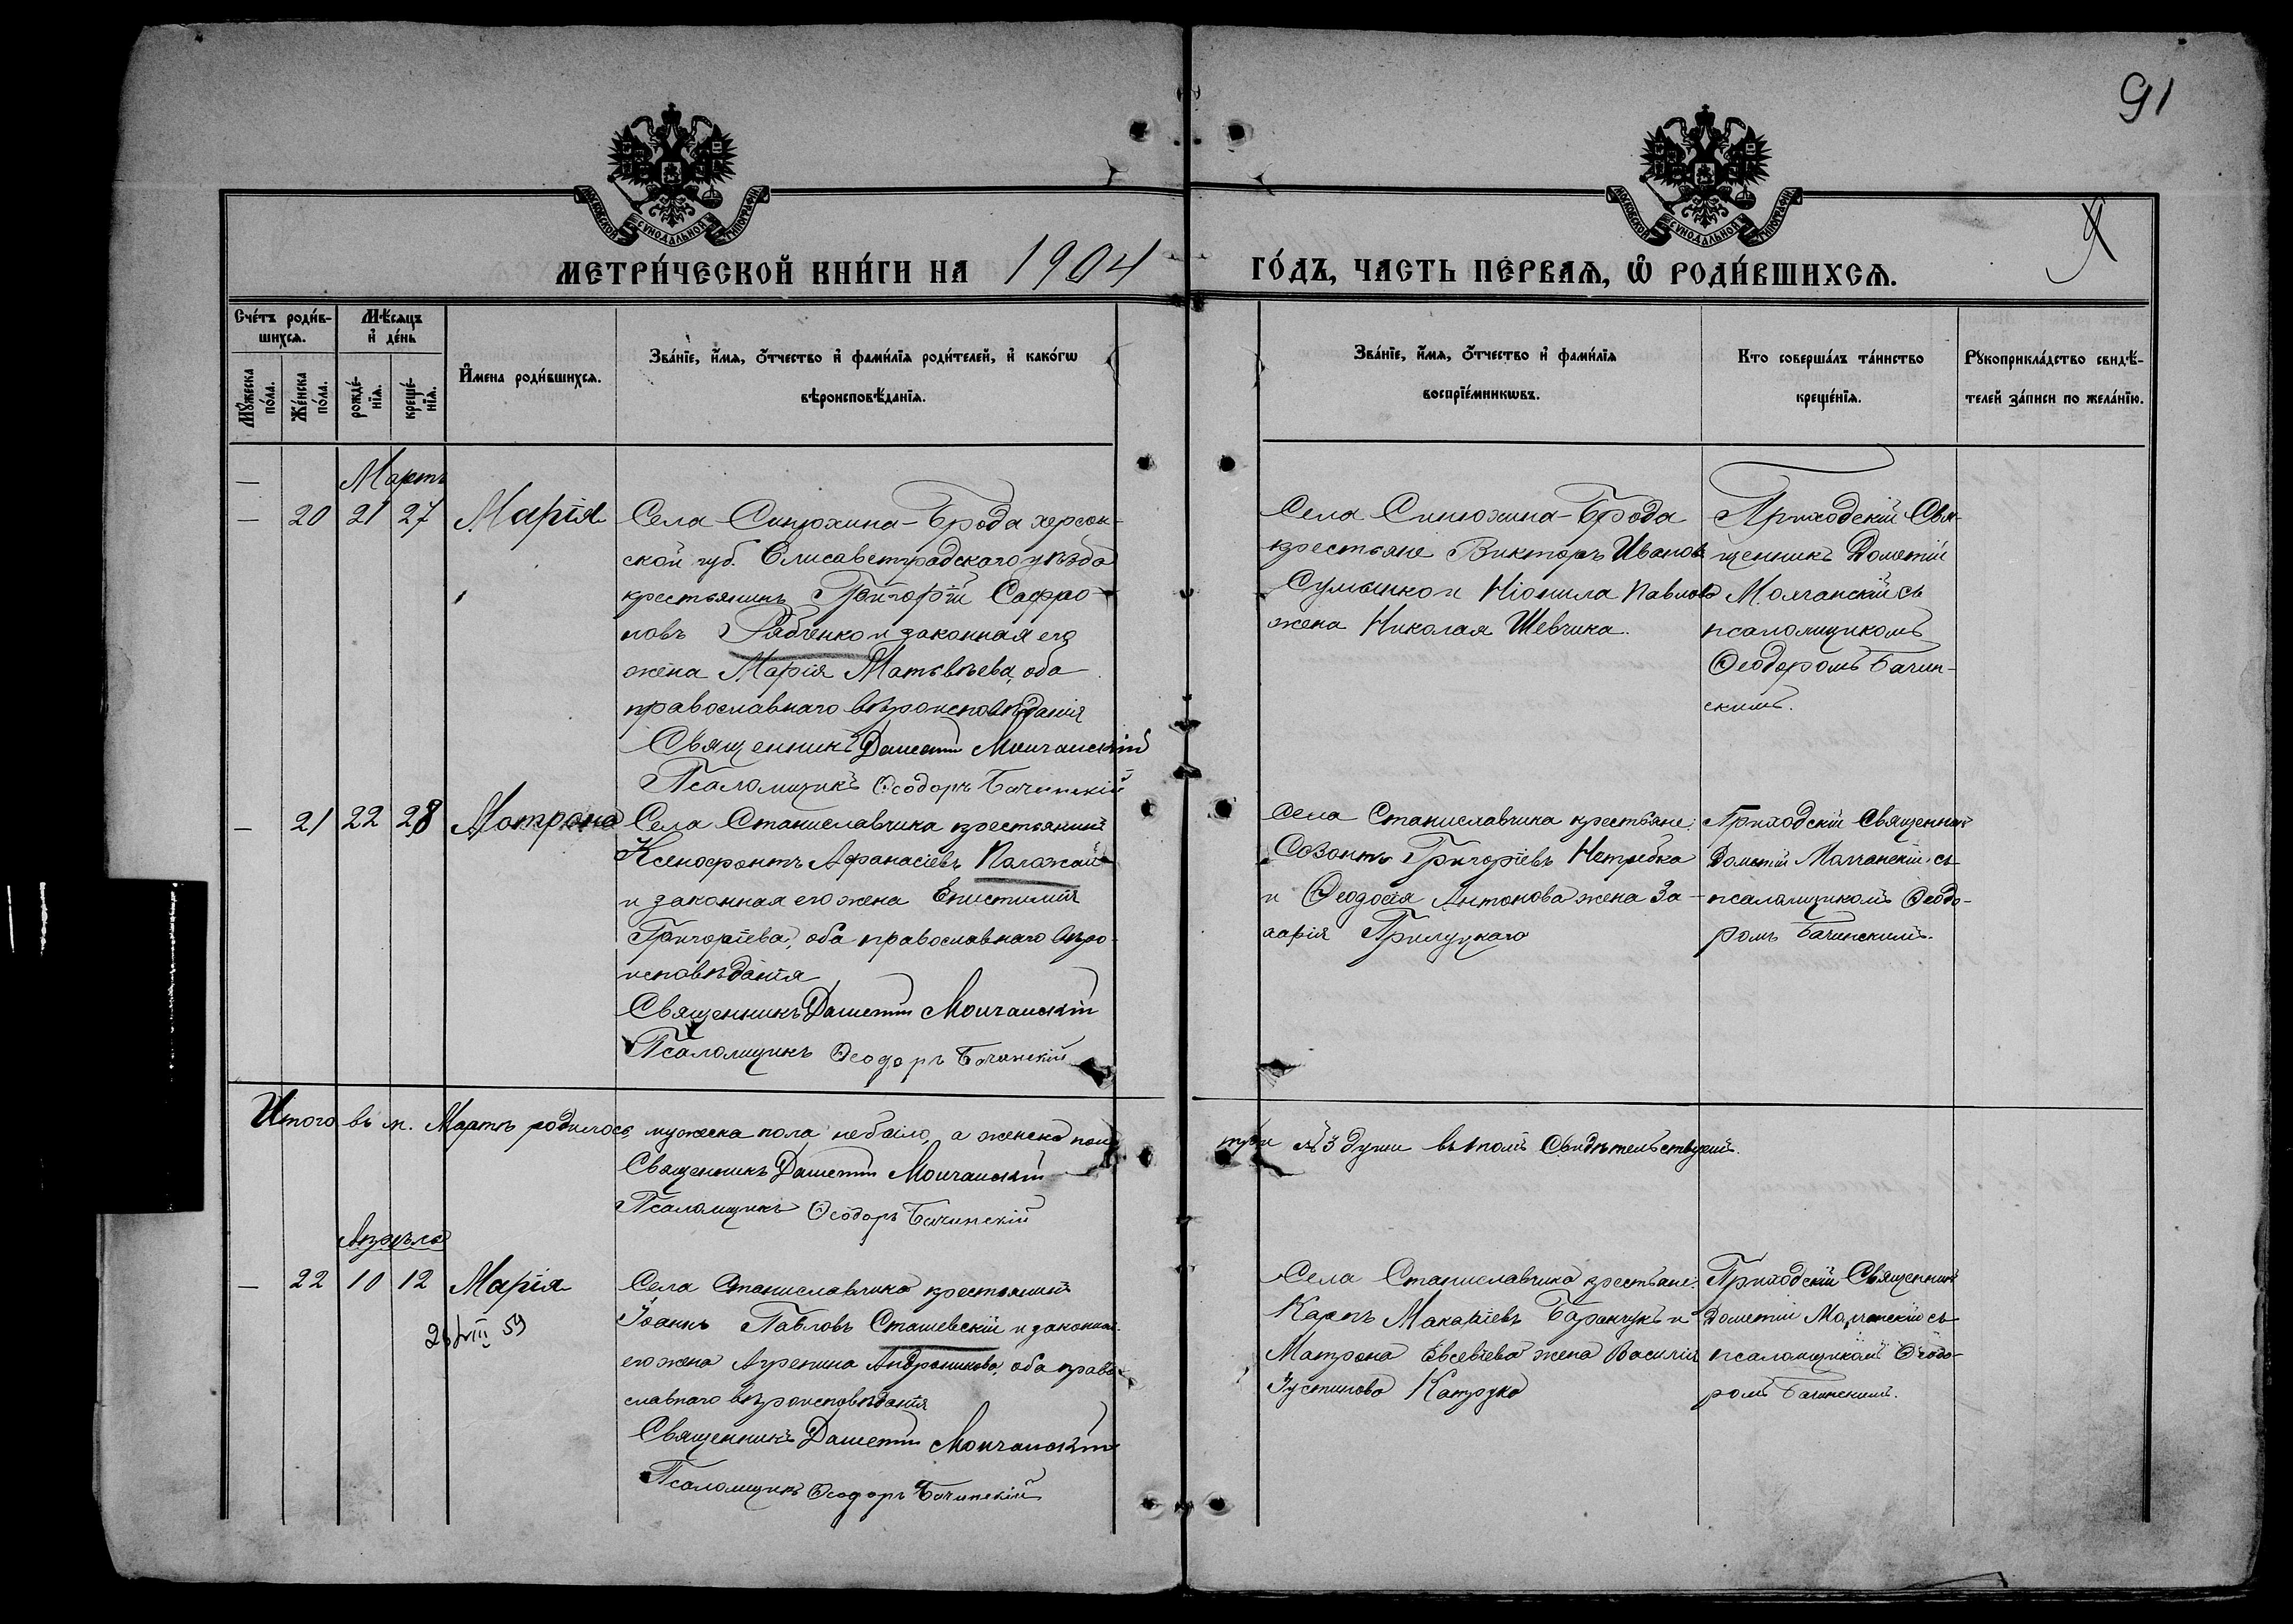 91
МОСКОВСКОЙ СѴНОДАЛЬНОЙ ТИПОГРАФІИ
МОСКОВСКОЙ СѴНОДАЛЬНОЙ ТИПОГРАФІИ
МЕТРИ́ЧЕСКОЙ КНИ́ГИ НА 1904 ГО́ДЪ, ЧАСТЬ ПЕ́РВАЯ, Ѡ҆ РОДИ́ВШИХСЯ.
Сче́тъ роди́в-
шихся.
Мѣ́сяцъ
и҆ де́нь
Мꙋ́жеска
по́ла.
Же́нска
по́ла.
рожде́-
нїя.
креще́-
нїя.
И҆мена роди́вшихся.
Зва́нїе, и҆́мя, ѻ҆́тчество и҆ фами́лїя роди́телей, и҆ како́гѡ
вѣроисповѣ́данїя.
Зва́нїе, и҆́мя, ѻ҆́тчество и҆ фами́лїя
воспрїе́мникѡвъ.
Кто соверша́лъ та́инство
креще́нїя.
Рꙋкоприкла́дство свидѣ́-
телей за́писи по жела́нїю.
Мартъ
— 20 21 27 Марія
Села Синюхина-Брода херсон-
ской губ. Елисаветградскаго уѣзда
крестьянинъ Григорій Сафро-
новъ Рябченко и законная его
жена Марія Матѳѣева, оба
православнаго вѣроисповѣданія
Священникъ Дометій Молчанскій
Псаломщикъ Ѳеодоръ Бачинскій
Села Синюхина-Брода
крестьяне Викторъ Ивановъ
и Ніонила Павлова
жена Николая Шевчика.
Приходскій Свя-
щенникъ Дометій
Молчанскій съ
псаломщикомъ
Ѳеодоромъ Бачин-
скимъ.
— 21 22 28 Матрона
Села Станиславчика крестьянинъ
Ксенофонтъ Аѳанасіевъ
и законная его жена Епистимія
Григоріева, оба православнаго вѣро-
исповѣданія
Священникъ Дометій Молчанскій
Псаломщикъ Ѳеодоръ Бачинскій
Села Станиславчика крестьяне:
Созонтъ Григоріевъ Нетребка
и Ѳеодосія Антонова жена За-
харія Прилуцкаго
Приходскій Священникъ
Дометій Молчанскій съ
псаломщикомъ Ѳеодо-
ромъ Бачинскимъ.
Итого въ м. Мартѣ родилось мужеска пола не было, а женска пола три 3 души въ томъ Свидѣтельствуемъ.
Священникъ Дометій Молчанскій
Псаломщикъ Ѳеодоръ Бачинскій
Апрѣль
— 22 10 12 Марія
26/VIII 59
Села Станиславчика крестьянинъ
Іоаннъ Павловъ Сташевскій и законная
его жена Агрепина Андроникова, оба право-
славнаго вѣроисповѣданія
Священникъ Дометій Молчанскій
Псаломщикъ Ѳеодоръ Бачинскій
Села Станиславчика крестьяне:
Карпъ Макаріевъ Баранчукъ и
Матрона Евсевіева жена Василія
Іустинова
Приходскій Священникъ
Дометій Молчанскій съ
псаломщикомъ Ѳеодо-
ромъ Бачинскимъ.